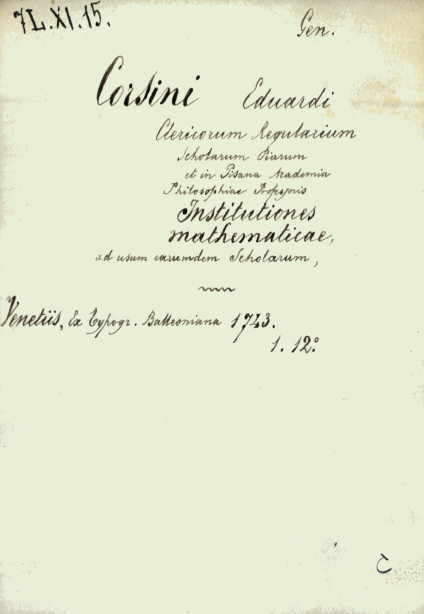 7L.XI.15.
Gen.
Corsini Eduardi
Clericorum Regularium
Scholarum Piarum
et in Pisana Academia
Philosophiae Professoris
Institutiones
mathematicae,
ad usum earumdem Scholarum,
Venetiis, Ex Typogr. Balleoniana 1743.
1. 12°.